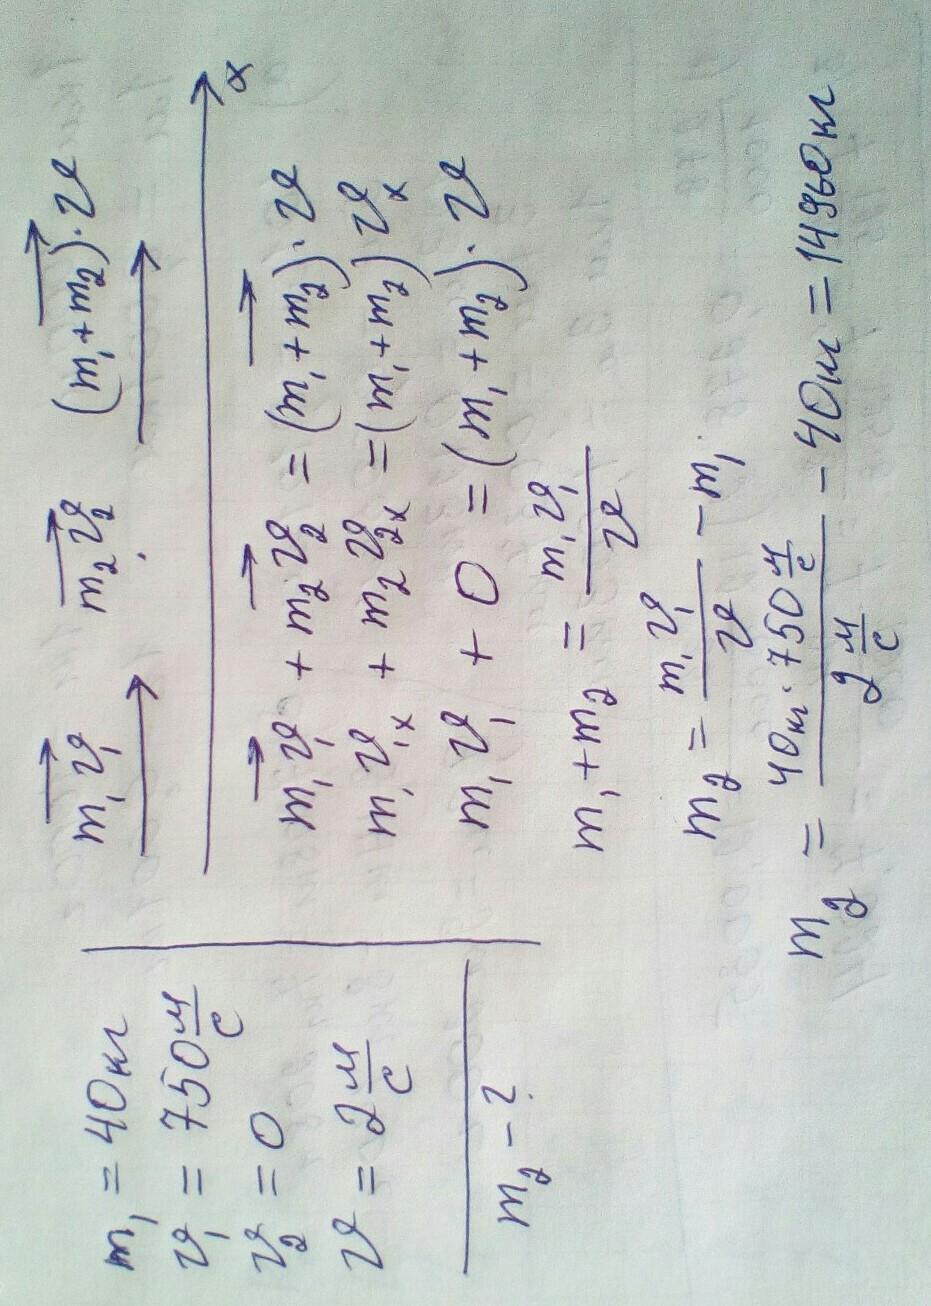 m₁ = 40кг
υ₁ = 750 м/с
υ₂ = 0
υ = 2 м/с
m₂ - ?
m₁υ₁⃗ m₂υ₂⃗ (m₁ + m₂)⃗ · υ
x
m₁υ₁⃗ + m₂υ₂⃗ = (m₁ + m₂)⃗ · υ
m₁υ₁ₓ + m₂υ₂ₓ = (m₁ + m₂) υₓ
m₁υ₁ + 0 = (m₁ + m₂) · υ
m₁ + m₂ = m₁υ₁/υ
m₂ = m₁υ₁/υ - m₁
m₂ = 40кг · 750 м/с / 2 м/с - 40кг = 14960кг